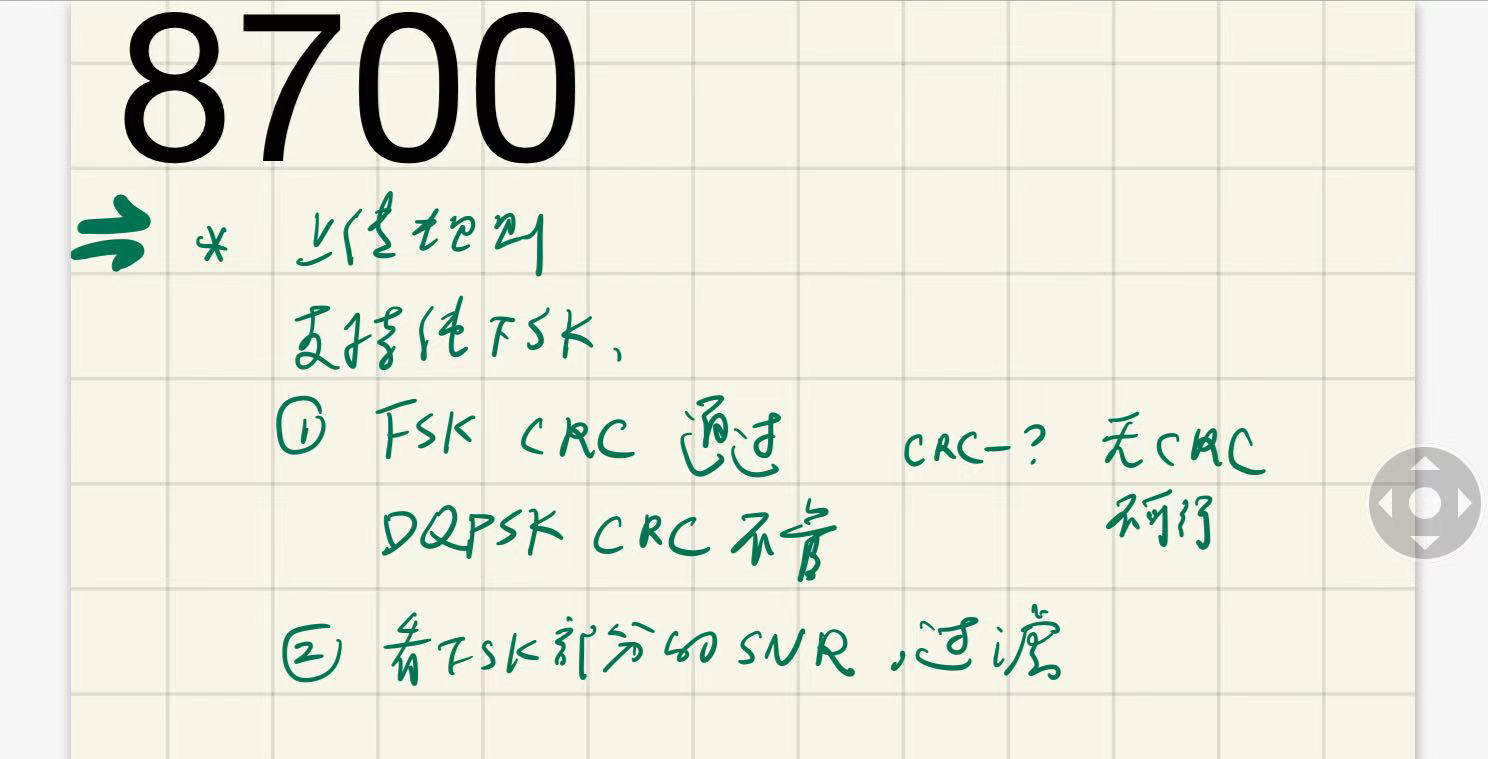 8700
* 上传规则
支持传FSK、
① FSK CRC 通过 CRC-? 无CRC
DQPSK CRC 不管 不可行
② 看FSK部分的SNR,过滤